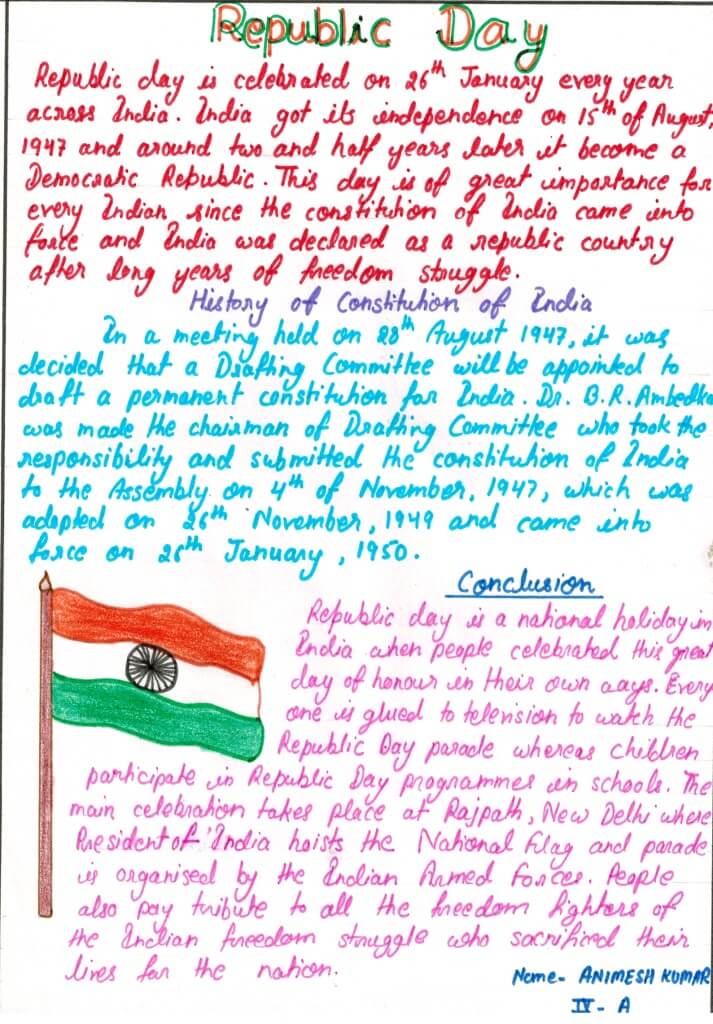 Republic Day
Republic day is celebrated on 26th January every year
across India. India got its independence on 15th of August,
1947 and around two and half years later it become a
Democratic Republic. This day is of great importance for
every Indian since the constitution of India came into
force and India was declared as a republic country
after long years of freedom struggle.
History of Constitution of India
In a meeting held on 28th August 1947, it was
decided that a Drafting Committee will be appointed to
draft a permanent constitution for India. Dr. B.R. Ambedka
was made the chairman of Drafting Committee who took the
responsibility and submitted the constitution of India
to the Assembly on 4th of November, 1947, which was
adopted on 26th November, 1949 and came into
force on 26th January, 1950.
Conclusion
Republic day is a national holiday in
India when people celebrated this great
day of honour in their own ways. Every
one is glued to television to watch the
Republic Day parade whereas children
participate in Republic Day programmes in schools. The
main celebration takes place at Rajpath, New Delhi where
President of India hoists the National Flag and parade
is organised by the Indian Armed forces. People
also pay tribute to all the freedom fighters of
the Indian freedom struggle who sacrificed their
lives for the nation.
Name- ANIMESH KUMAR
IV - A